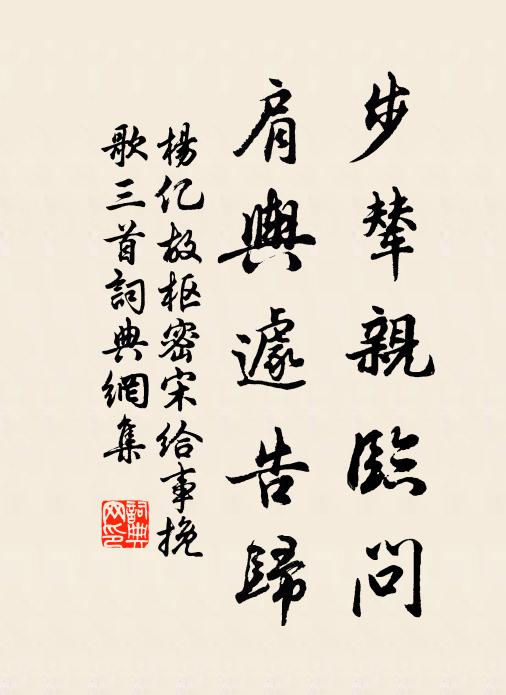 步輦親臨問
肩輿遽告歸
楊亿故枢密宋给事挽
歌三首詞典網集
詞典网印